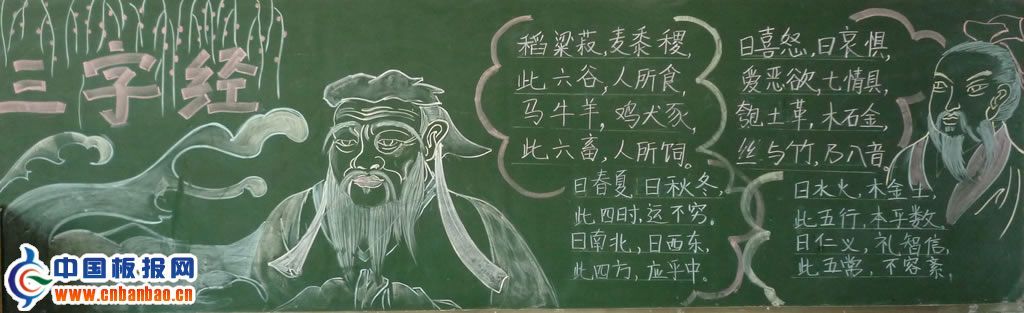 三字经
稻粱菽,麦黍稷,
此六谷,人所食,
马牛羊,鸡犬豕,
此六畜,人所饲。
曰春夏,曰秋冬,
此四时,运不穷。
曰南北,曰西东,
此四方,应乎中。
曰喜怒,曰哀惧,
爱恶欲,七情具,
匏土革,木石金,
丝与竹,乃八音
曰水火,木金土
此五行,本乎数。
曰仁义,礼智信,
此五常,不容紊,
中国板报网
www.cnbanbao.cn